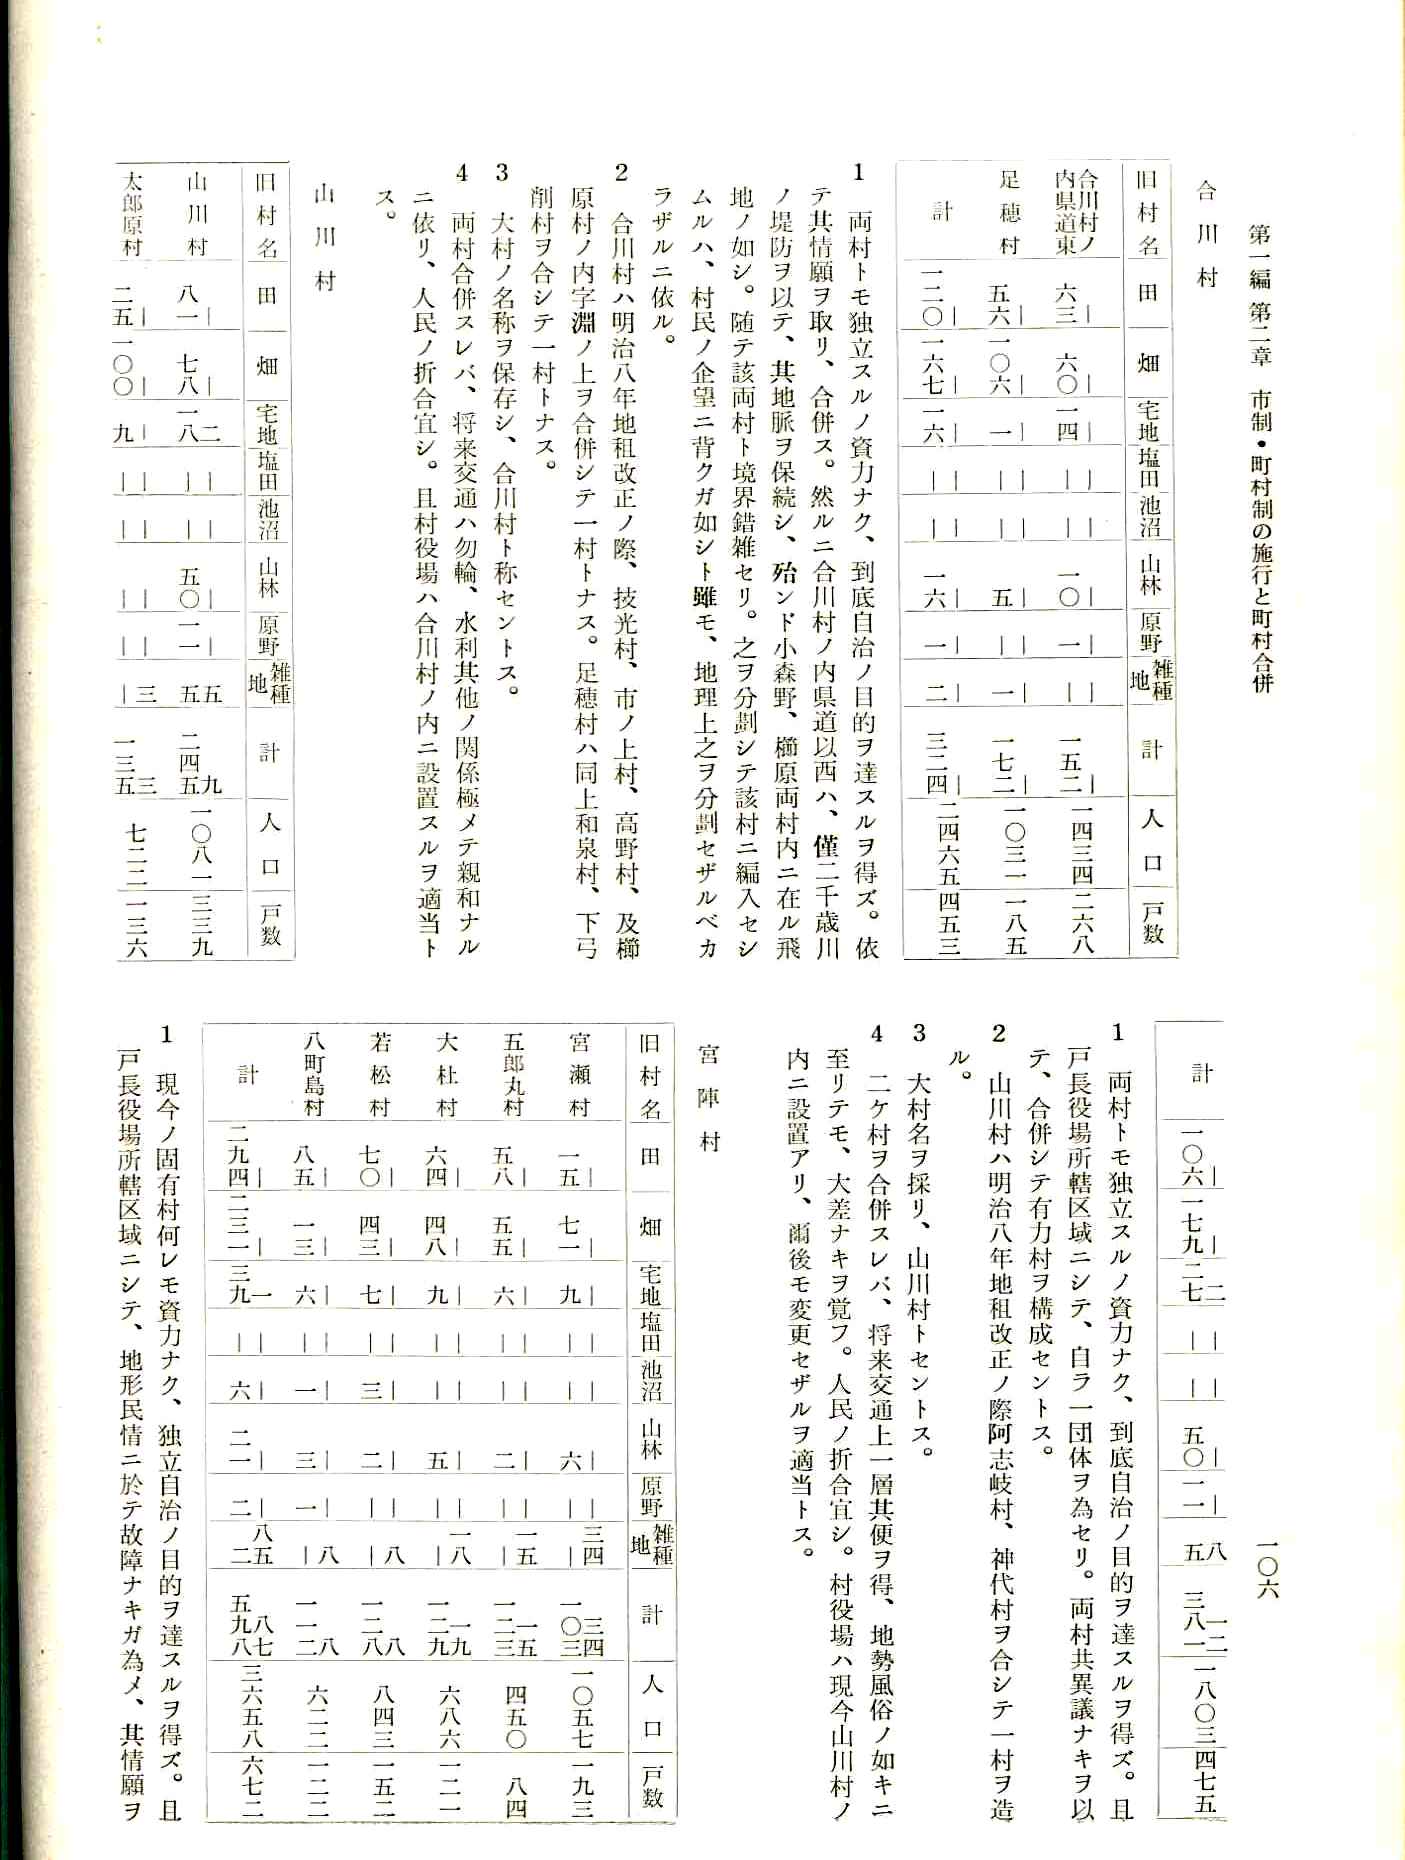 第一編 第二章 市制・町村制の施行と町村合併
一〇六
合川村
旧村名 田 畑 宅地 塩田 池沼 山林 原野 雑種地 計 人口 戸数
合川村ノ内県道東 六三｜ 六〇｜ 一四｜ ｜｜ ｜｜ 一〇｜ 一｜ ｜｜ 一五二｜ 一四三四 二六八
足穂村 五六｜ 一〇六｜ 一｜ ｜｜ ｜｜ 五｜ ｜｜ 一｜ 一七二｜ 一〇三一 一八五
計 一二〇｜ 一六七｜ 一六｜ ｜｜ ｜｜ 一六｜ 一｜ 二｜ 三二四｜ 二四六五 四五三
1 両村トモ独立スルノ資力ナク、到底自治ノ目的ヲ達スルヲ得ズ。依
テ其情願ヲ取リ、合併ス。然ルニ合川村ノ内県道以西ハ、僅二千歳川
ノ堤防ヲ以テ、其地脈ヲ保続シ、殆ンド小森野、櫛原両村内ニ在ル飛
地ノ如シ。随テ該両村ト境界錯雑セリ。之ヲ分劃シテ該村ニ編入セシ
ムルハ、村民ノ企望ニ背クガ如シト雖モ、地理上之ヲ分劃セザルベカ
ラザルニ依ル。
2 合川村ハ明治八年地租改正ノ際、技光村、市ノ上村、高野村、及櫛
原村ノ内字淵ノ上ヲ合併シテ一村トナス。足穂村ハ同上和泉村、下弓
削村ヲ合シテ一村トナス。
3 大村ノ名称ヲ保存シ、合川村ト称セントス。
4 両村合併スレバ、将来交通ハ勿輪、水利其他ノ関係極メテ親和ナル
ニ依リ、人民ノ折合宜シ。且村役場ハ合川村ノ内ニ設置スルヲ適当ト
ス。
山川村
旧村名 田 畑 宅地 塩田 池沼 山林 原野 雑種地 計 人口 戸数
山川村 八一｜ 七八｜ 一八二 ｜｜ ｜｜ 五〇｜ 一一｜ 五五 二四五九 一〇八一 三三九
太郎原村 二五｜ 一〇〇｜ 九｜ ｜｜ ｜｜ ｜｜ ｜｜ ｜三 一三五三 七二二 一三六
計 一〇六｜ 一七九｜ 二七二 ｜｜ ｜｜ 五〇｜ 一一｜ 五八 三八一一二 一八〇三 四七五
1 両村トモ独立スルノ資力ナク、到底自治ノ目的ヲ達スルヲ得ズ。且
戸長役場所轄区域ニシテ、自ラ一団体ヲ為セリ。両村共異議ナキヲ以
テ、合併シテ有力村ヲ構成セントス。
2 山川村ハ明治八年地租改正ノ際阿志岐村、神代村ヲ合シテ一村ヲ造
ル。
3 大村名ヲ採リ、山川村トセントス。
4 二ケ村ヲ合併スレバ、将来交通上一層其便ヲ得、地勢風俗ノ如キニ
至リテモ、大差ナキヲ覚フ。人民ノ折合宜シ。村役場ハ現今山川村ノ
内ニ設置アリ、爾後モ変更セザルヲ適当トス。
宮陣村
旧村名 田 畑 宅地 塩田 池沼 山林 原野 雑種地 計 人口 戸数
宮瀬村 一五｜ 七一｜ 九｜ ｜｜ ｜｜ 六｜ ｜｜ ｜三四 一〇三三四 一〇五七 一九三
五郎丸村 五八｜ 五五｜ 六｜ ｜｜ ｜｜ 二｜ ｜｜ ｜一五 一二三一五 四五〇 八四
大杜村 六四｜ 四八｜ 九｜ ｜｜ ｜｜ 五｜ ｜｜ ｜一八 一二九一九 六八六 一二一
若松村 七〇｜ 四三｜ 七｜ ｜｜ 三｜ 二｜ ｜｜ ｜八 一二八八 八四三 一五二
八町島村 八五｜ 一三｜ 六｜ ｜｜ 一｜ 三｜ 一｜ ｜八 一一二八 六二二 一二二
計 二九四｜ 二三一｜ 三九一 ｜｜ 六｜ 二一｜ 二｜ 二八五 五九八八七 三六五八 六七二
1 現今ノ固有村何レモ資力ナク、独立自治ノ目的ヲ達スルヲ得ズ。且
戸長役場所轄区域ニシテ、地形民情ニ於テ故障ナキガ為メ、其情願ヲ